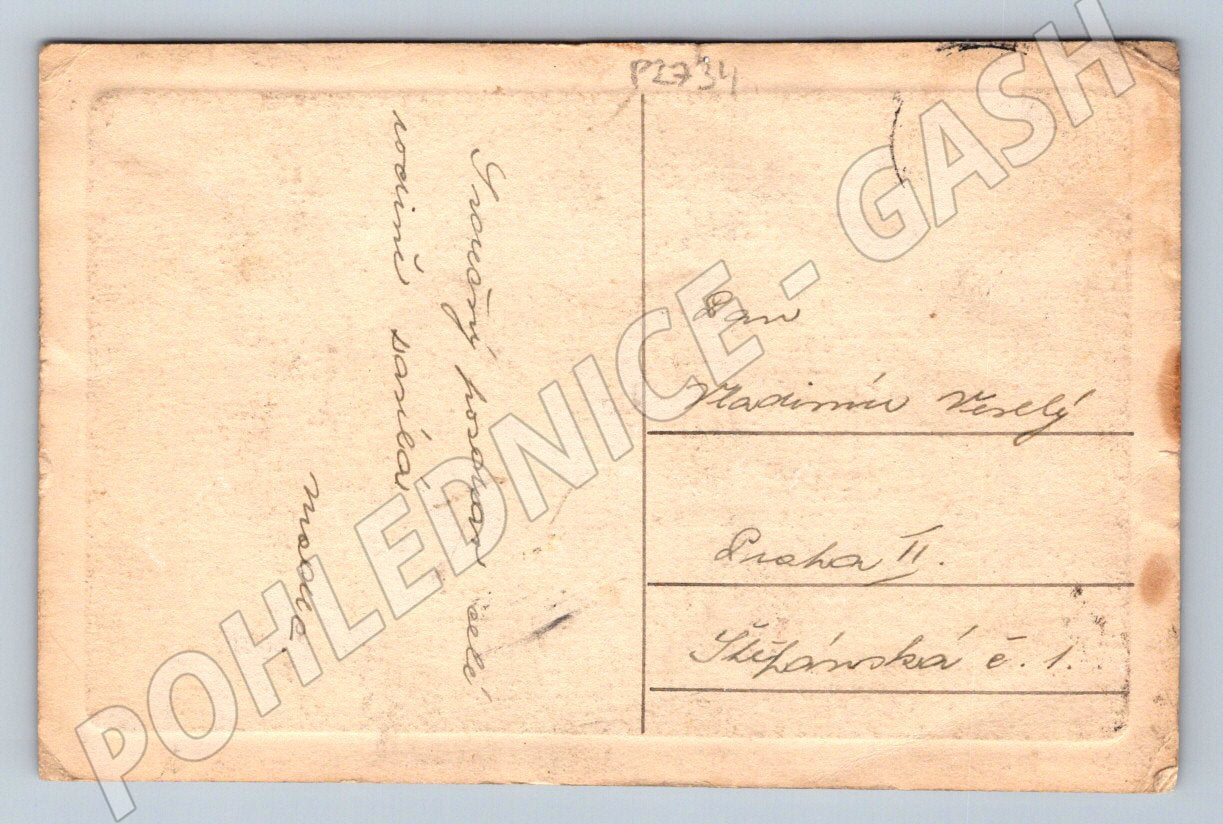 P2734
Srdečný pozdrav celé
rodině zasílá
Pan
Vladimír Veselý
Praha II.
Štěpánská č. 1.
POHLEDNICE - GASH